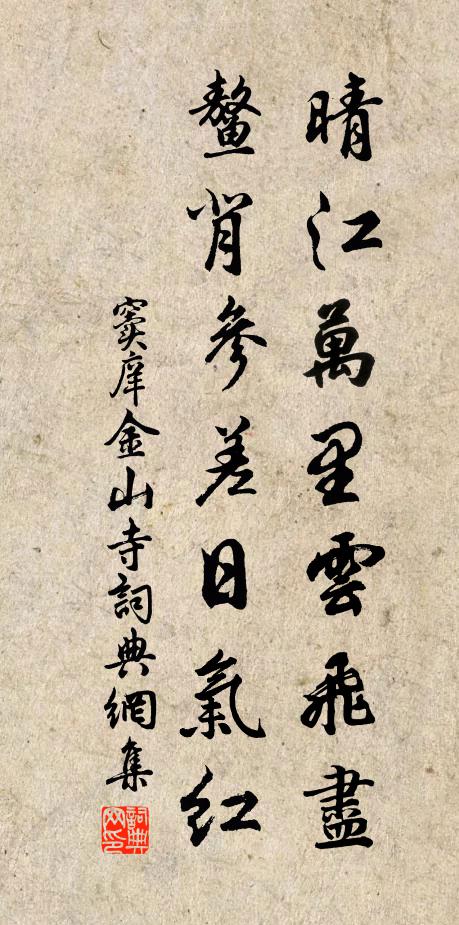 晴江萬里雲飛盡
鼇背參差日氣紅
竇庠金山寺詞典網集
詞典網印